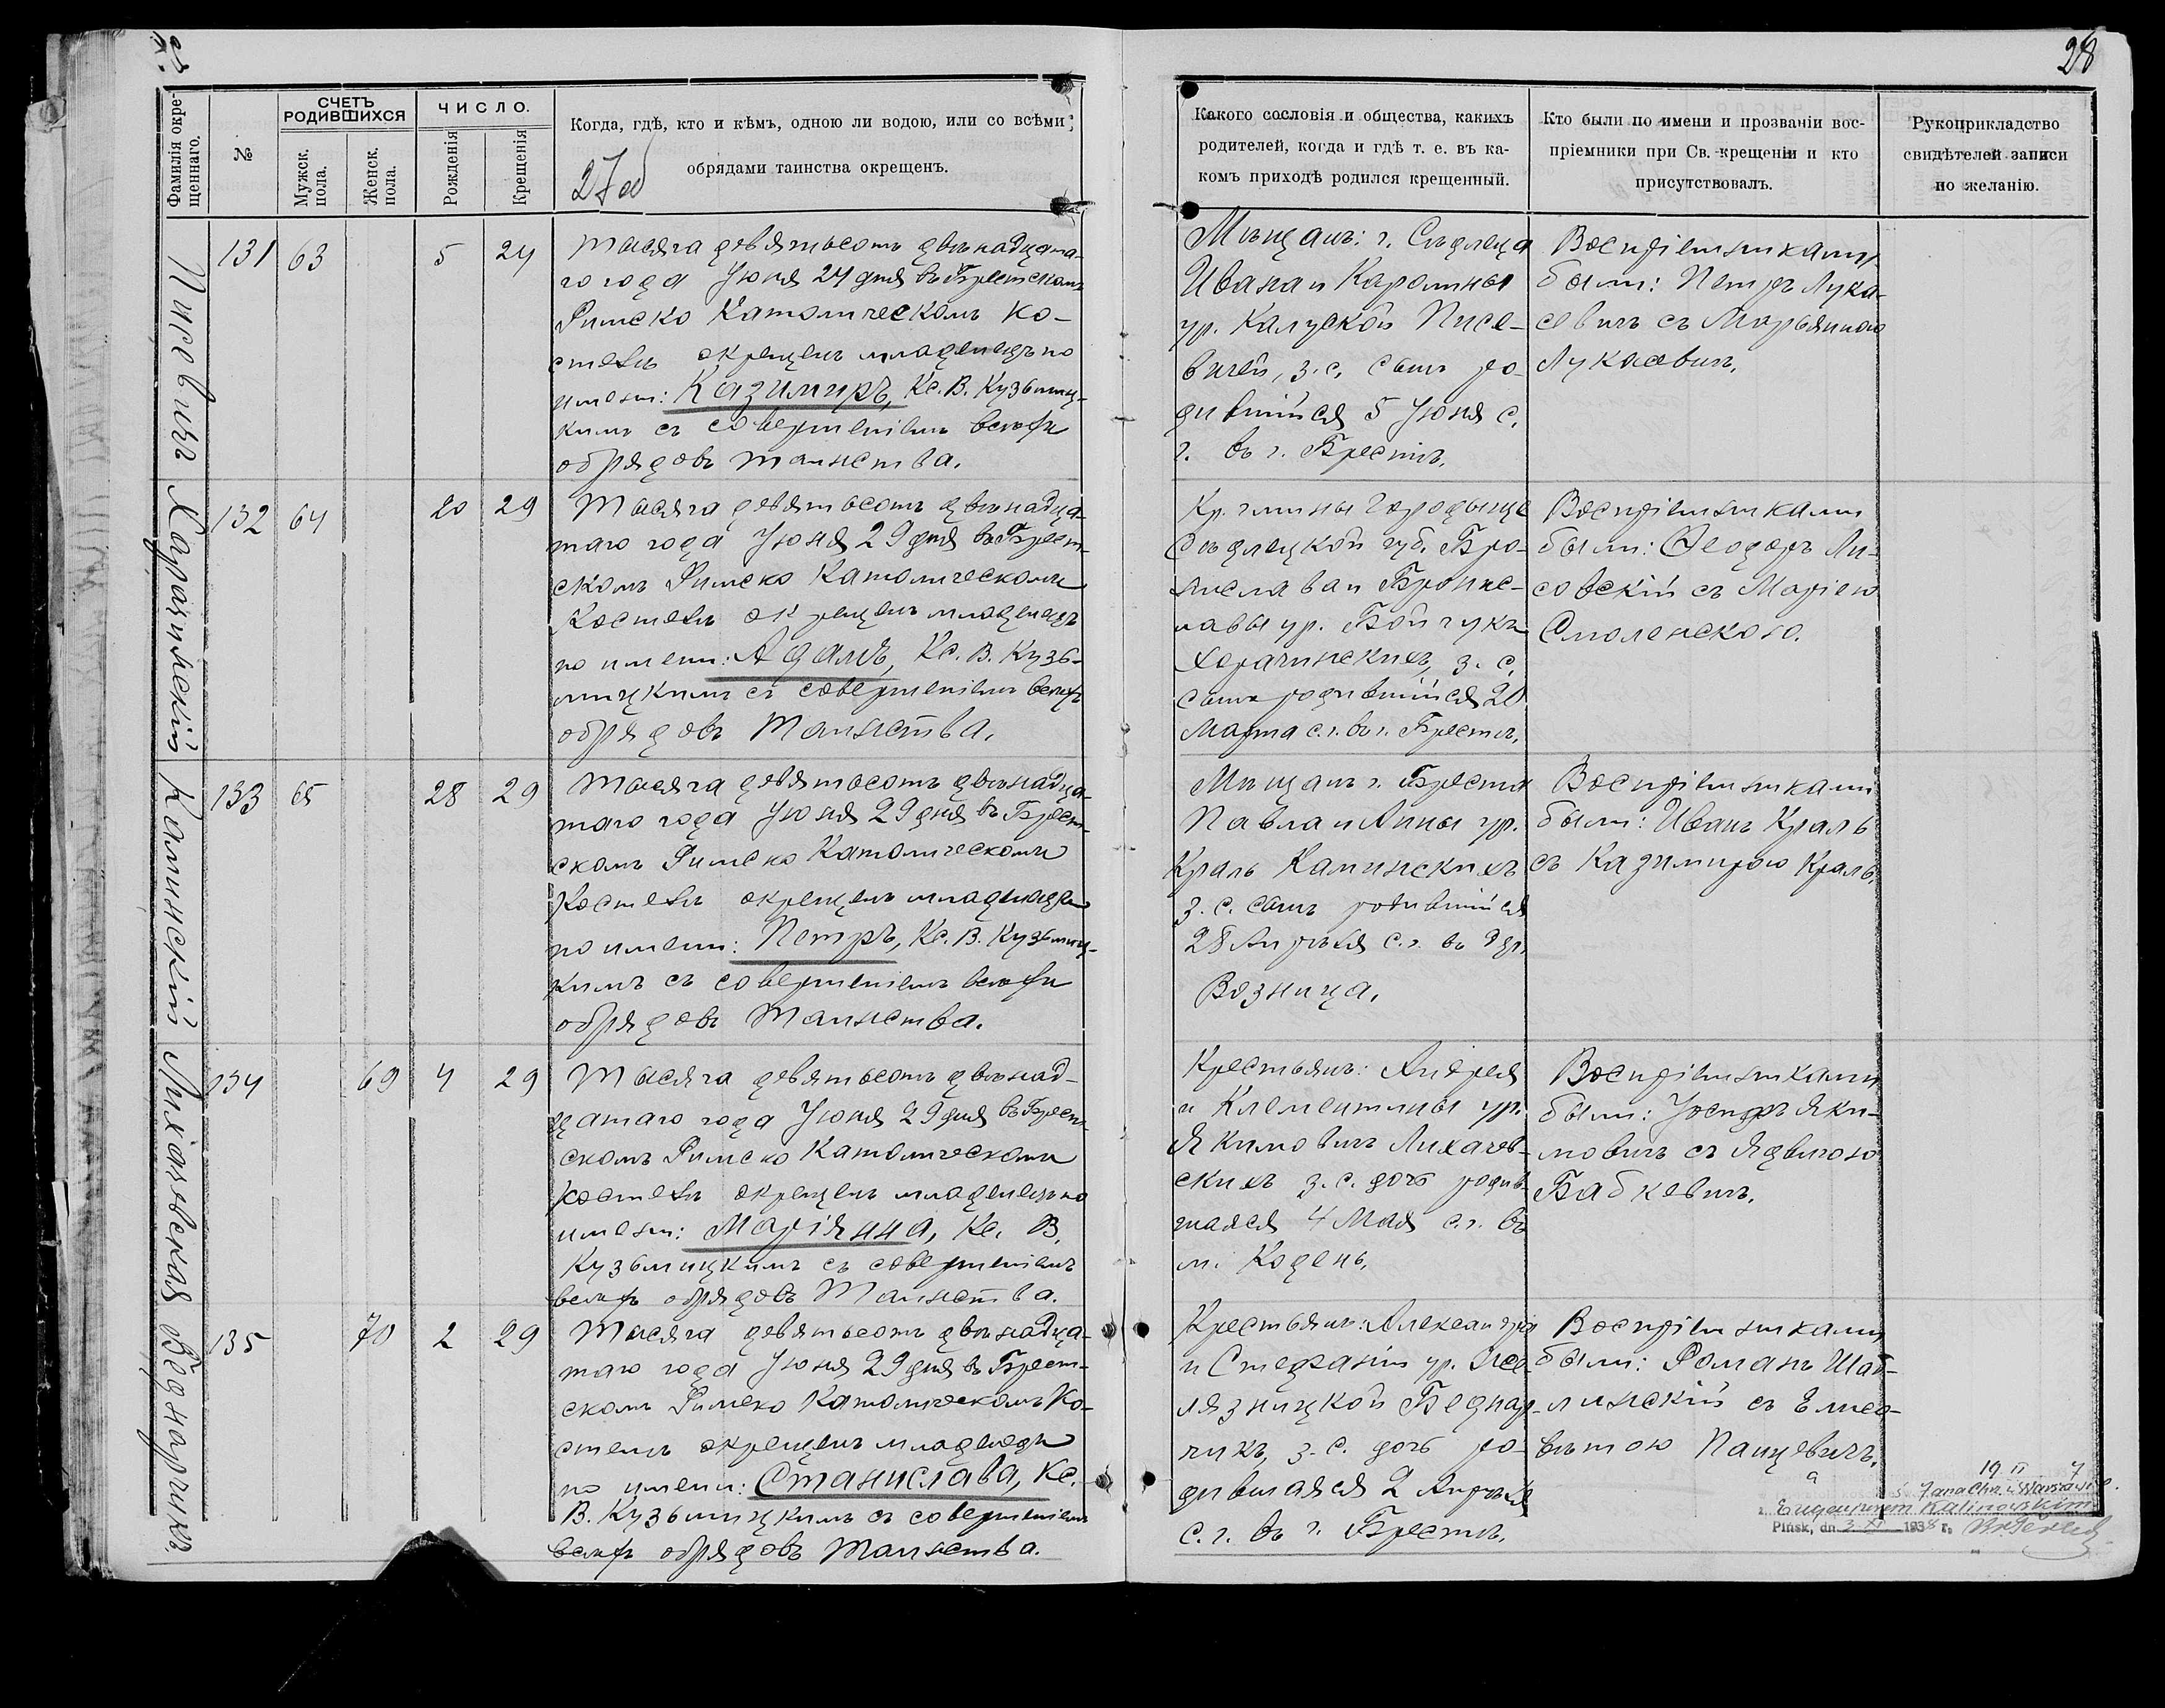 28
Фамилія окре-
щеннаго.
№
СЧЕТЪ
РОДИВШИХСЯ
Мужск.
пола.
Женск.
пола.
ЧИСЛО.
Рожденія
Крещенія
Когда, гдѣ, кто и кѣмъ, одною ли водою, или со всѣми
обрядами таинства окрещенъ.
27об
Какого сословія и общества, какихъ
родителей, когда и гдѣ т. е. въ ка-
комъ приходѣ родился крещенный.
Кто были по имени и прозваніи вос-
пріемники при Св. крещеніи и кто
присутствовалъ.
Рукоприкладство
свидѣтелей записи
по желанію.
Писевичъ
131 63 5 24
Тысяча девятьсотъ двѣнадцата-
го года Іюня 24 дня въ Брестскомъ
Римско Католическомъ Ко-
стелѣ окрещенъ младенецъ по
имени: Казимиръ, Кс. В. Кузьмиц-
кимъ съ совершеніемъ всѣхъ
обрядовъ таинства.
Мѣщанъ: г. Сѣдлеца
Ивана и Каролины
ур. Калуской Писе-
вичей, з. с. сынъ ро-
дившійся 5 Іюня с.
г. въ г. Брестѣ.
Воспріемниками
были: Петръ Лука-
севичъ съ Марьянною
Лукасевичъ.
Хорачинскій
132 64 20 29
Тысяча девятьсотъ двѣнадца-
таго года Іюня 29 дня въ Брест-
скомъ Римско Католическомъ
Костелѣ окрещенъ младенецъ
по имени: Адамъ, Кс. В. Кузь-
мицкимъ съ совершеніемъ всѣхъ
обрядовъ Таинства.
Кр. гмины Городыще
Сѣдлецкой губ. Бро-
нислава и Бронис-
лавы ур. Бойчукъ
Хорачинскихъ, з. с.
сынъ родившійся 20
Марта с. г. въ г. Брестѣ.
Воспріемниками
были: Ѳеодоръ Ли-
совскій съ Маріею
Смоленскою.
Каминскій
133 65 28 29
Тысяча девятьсотъ двѣнадца-
таго года Іюня 29 дня въ Брест-
скомъ Римско Католическомъ
Костелѣ окрещенъ младенецъ
по имени: Петръ, Кс. В. Кузьмиц-
кимъ съ совершеніемъ всѣхъ
обрядовъ Таинства.
Мѣщанъ г. Бреста
Павла и Анны ур.
Краль Каминскихъ
з. с. сынъ родившійся
28 Апрѣля с. г. въ дер.
Возница.
Воспріемниками
были: Иванъ Краль
съ Казимирою Краль.
Лихачевская
134 69 4 29
Тысяча девятьсотъ двѣнад-
цатаго года Іюня 29 дня въ Брест-
скомъ Римско Католическомъ
костелѣ окрещенъ младенецъ по
имени: Маріянна, Кс. В.
Кузьмицкимъ съ совершеніемъ
всѣхъ обрядовъ Таинства.
Крестьянъ: Андрея
и Клементины ур.
Якимовичъ Лихачев-
скихъ з. с. дочь родив-
шаяся 4 Мая с. г. въ
м. Кодень.
Воспріемниками
были: Іосифъ Яки-
мовичъ съ Ядвигою
Бабкевичъ.
Беднарчикъ
135 70 2 29
Тысяча девятьсотъ двѣнадца-
таго года Іюня 29 дня въ Брест-
скомъ Римско Католическомъ Ко-
стелѣ окрещенъ младенецъ
по имени: Станислава, Кс.
В. Кузьмицкимъ съ совершеніемъ
всѣхъ обрядовъ таинства.
Крестьянъ: Александра
и Стефаніи ур.
Беднар-
чикъ, з. с. дочь ро-
дившаяся 2 Апрѣля
с. г. въ г. Брестѣ.
Воспріемниками
были: Романъ Шаб-
линскій съ Елиса-
ветою Панцевичъ.
Eugeniuszem Kalinowskim
Pińsk, dn 3 XI 1938 r.